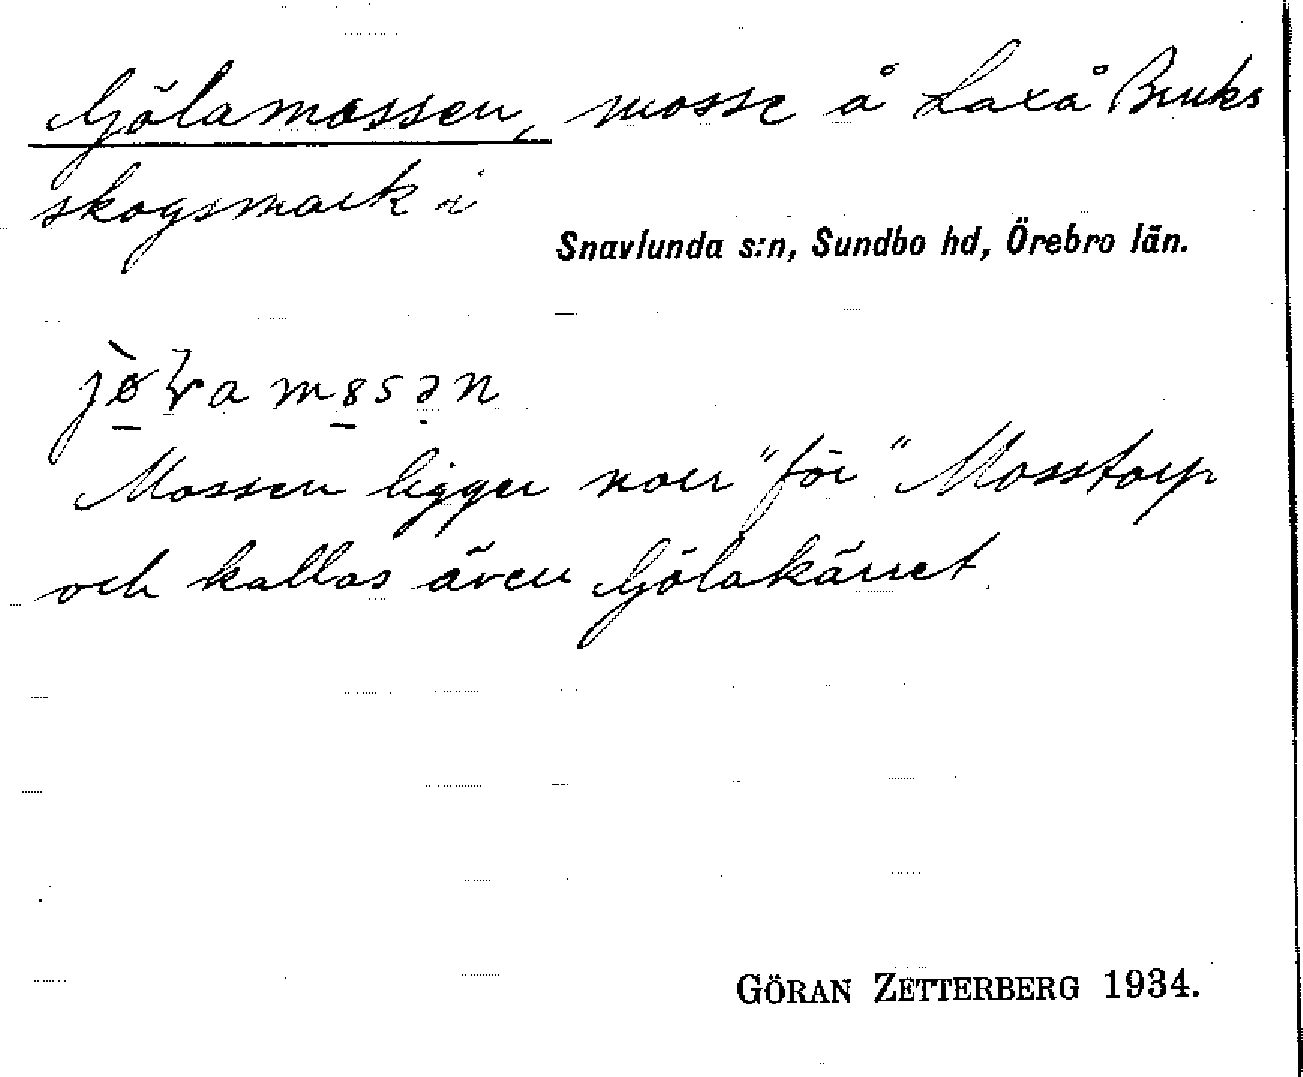 Gölamossen, mosse å Laxå Bruks
skogsmark i
Snavlunda s:n, Sundbo hd, Örebro län.
Mossen ligger norr "för" Mosstorp
och kallas även Gölakärret.
GÖRAN ZETTERBERG 1934.